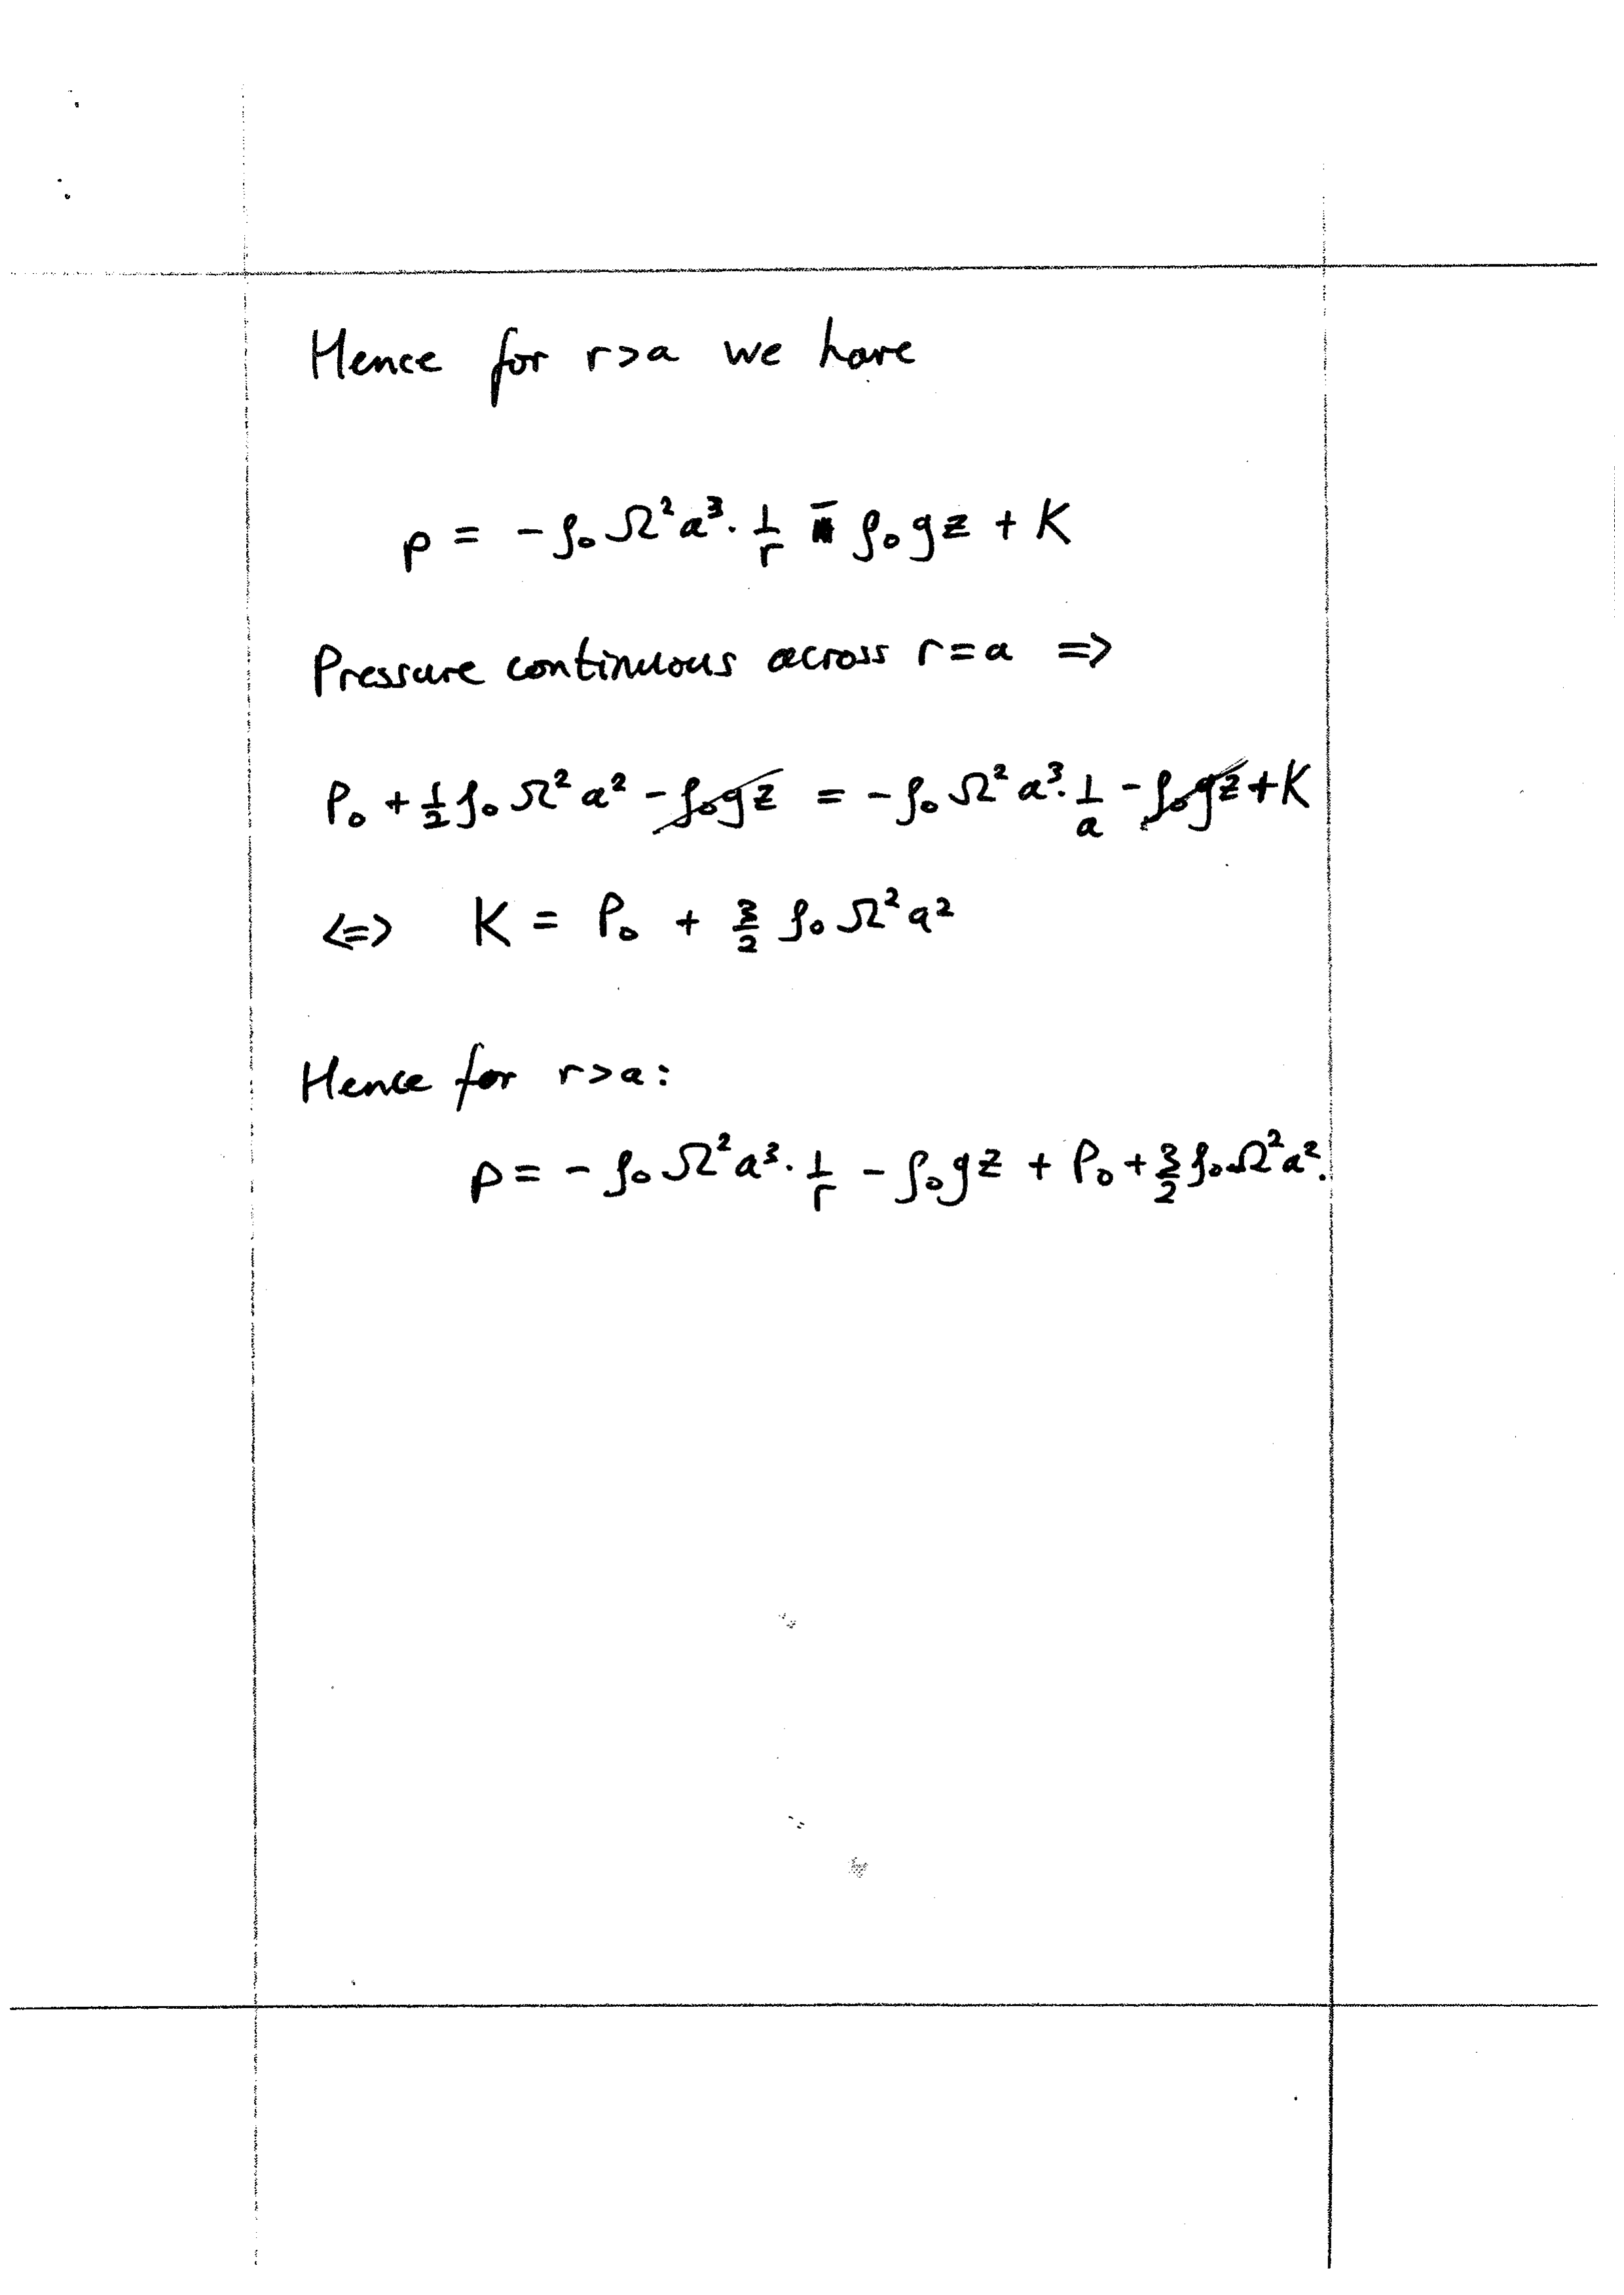 Hence for r>a we have
p = -ρ₀Ω²a³·1/r - ρ₀gz + K
Pressure continuous across r=a ⇒
P₀ + ½ρ₀Ω²a² - ρ₀gz = -ρ₀Ω²a³·1/a - ρ₀gz + K
⇔ K = P₀ + 3/2 ρ₀Ω²a²
Hence for r>a:
p = -ρ₀Ω²a³·1/r - ρ₀gz + P₀ + 3/2 ρ₀Ω²a².